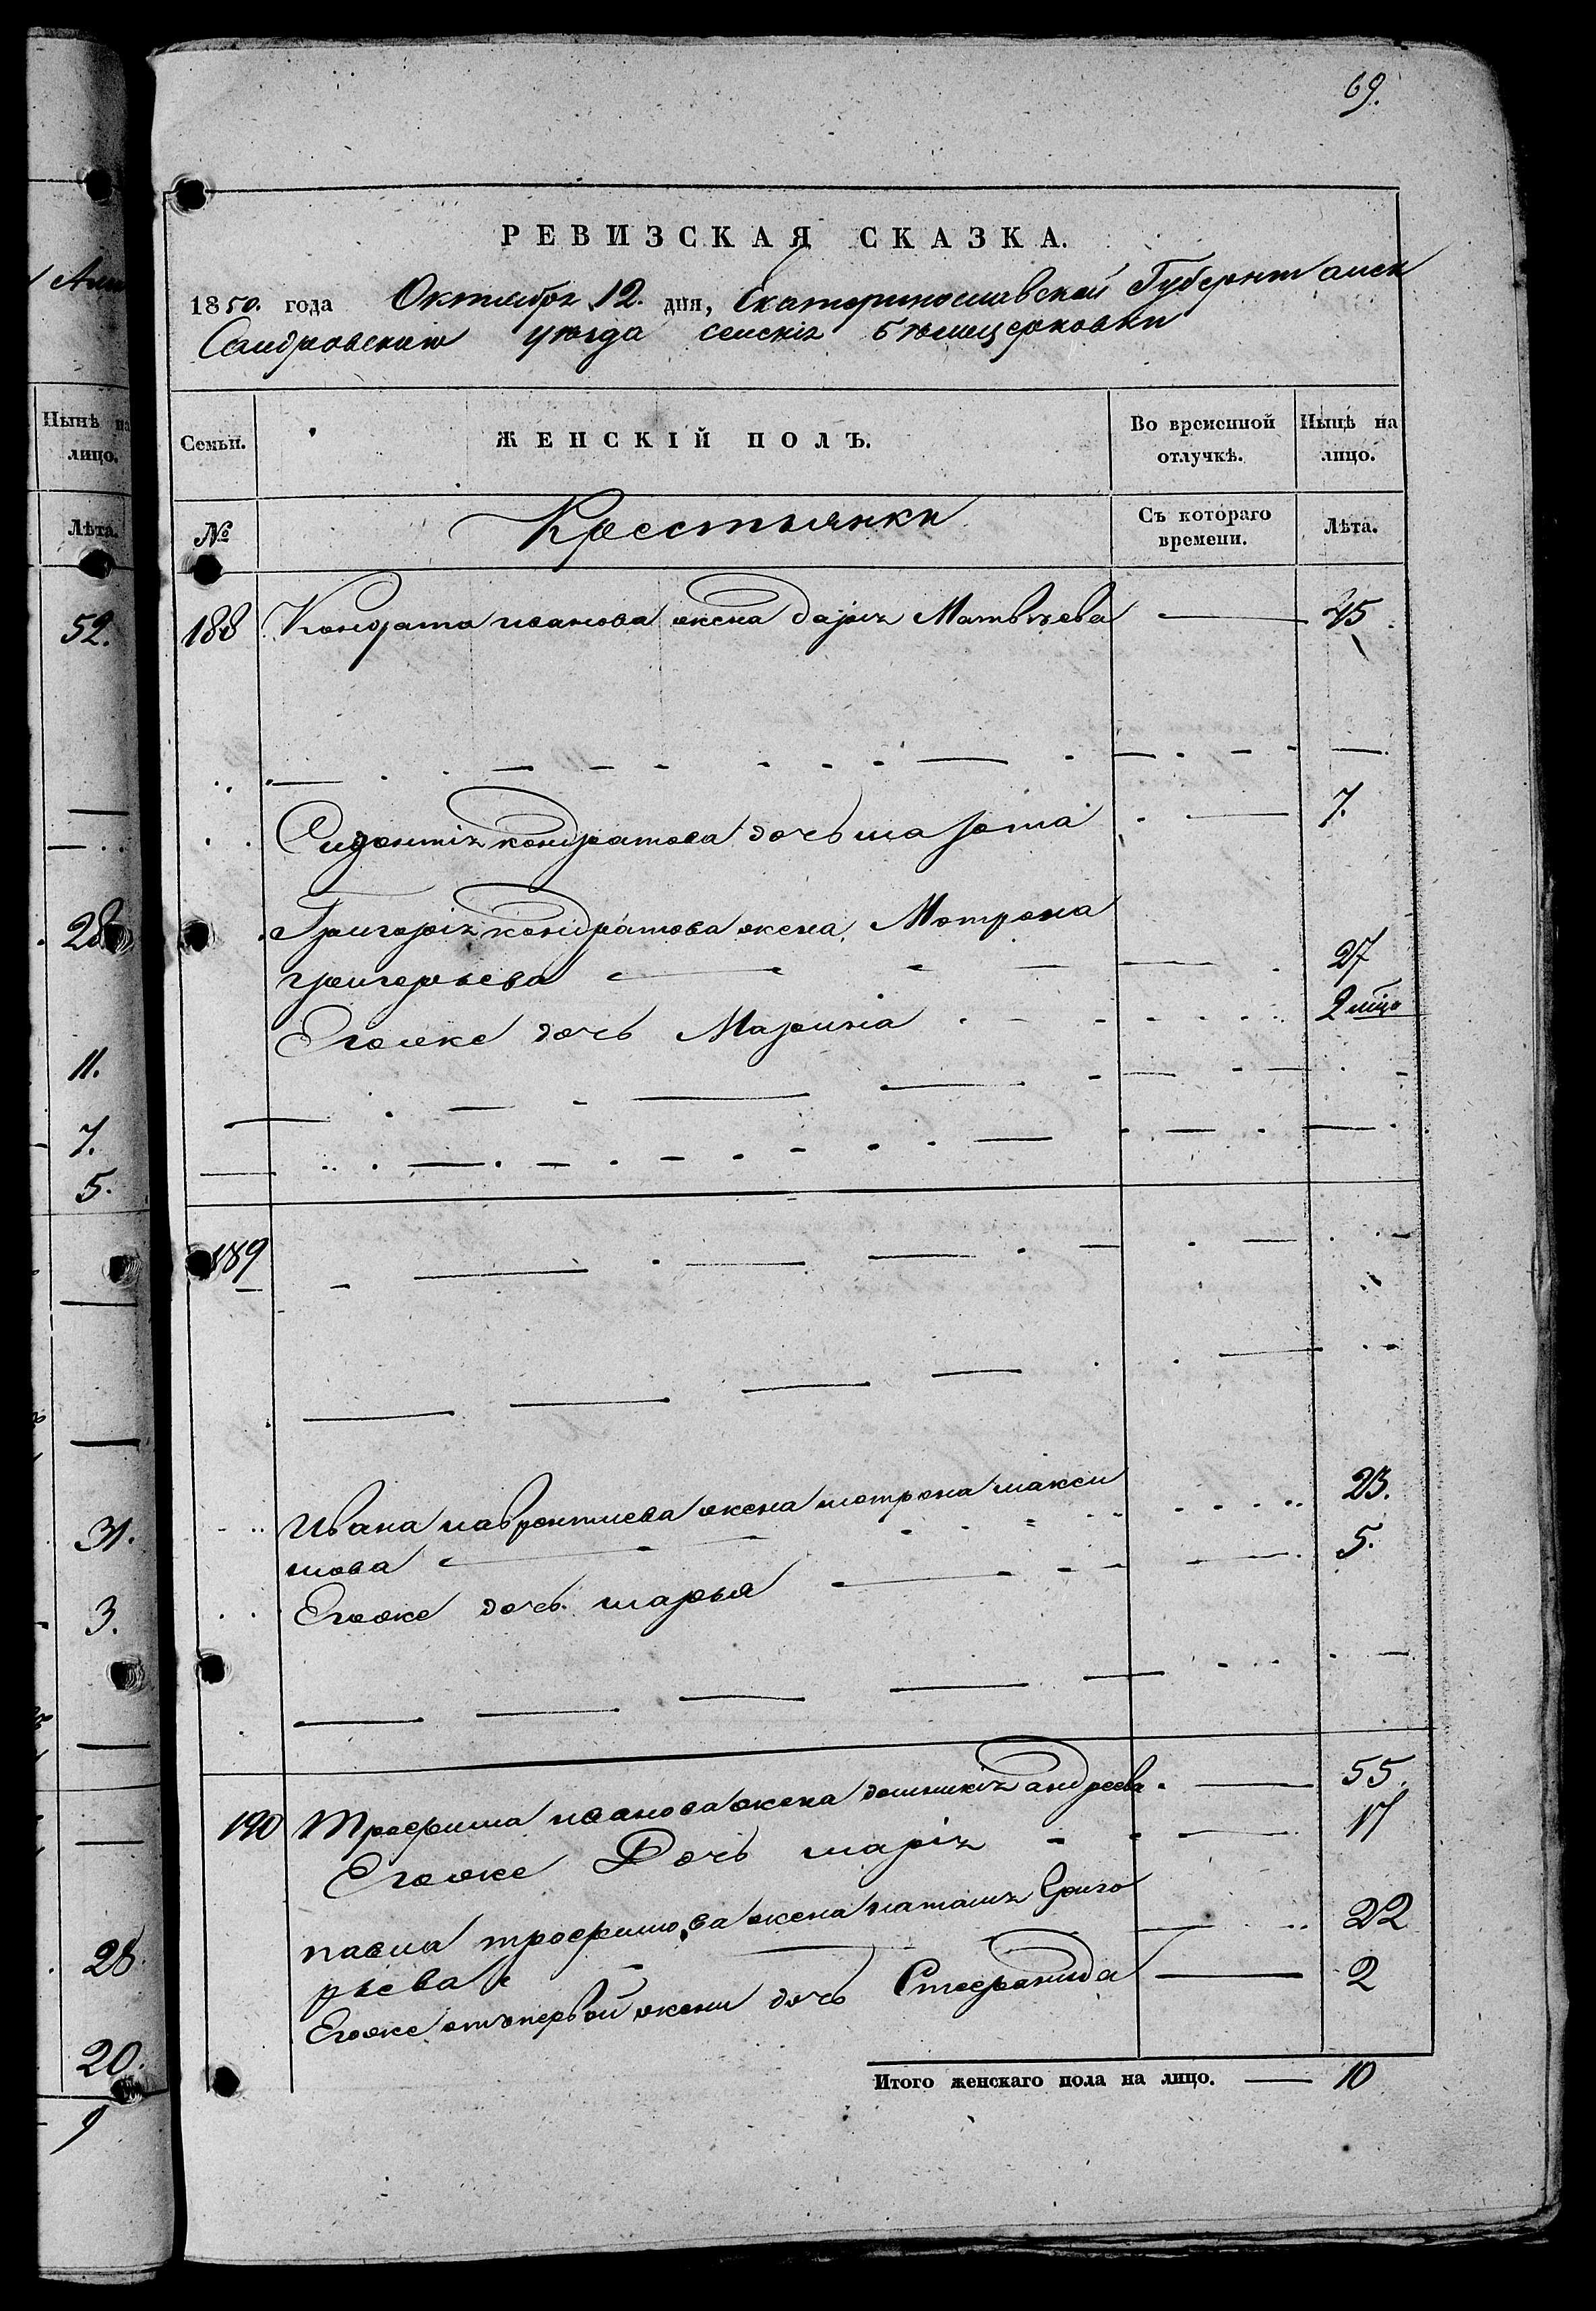 69.
РЕВИЗСКАЯ СКАЗКА.
1850. года Октября 12. дня, Екатеринославской Губерніи Алек
Сандровскаго уѣзда селенія Бѣлоцерковки
Алек
Нынѣ на
лицо.
Лѣта.
52.
28
11.
7.
5.
31.
3.
28.
20.
9
Семьи.
ЖЕНСКІЙ ПОЛЪ.
Во временной
отлучкѣ.
Нынѣ на
лицо.
№
Крестьянки
Съ котораго
времени.
Лѣта.
188 Кондрата иванова жена дарія Матвѣева 45
Кондратова дочь 7.
Григорія кондратова жена Мотрона
григорьева 27
Егоже дочь Марина 2
189
Ивана лаврентиева жена мотрона макси 23.
мова 5.
Егоже дочь марья
190 Трофима иванова жена андреева 55.
Егоже Дочь марія 17
павла трофимова жена наталія Григо 22
рьева
Егоже отъ первой жены дочь Стефанида 2
Итого женскаго пола на лицо. 10